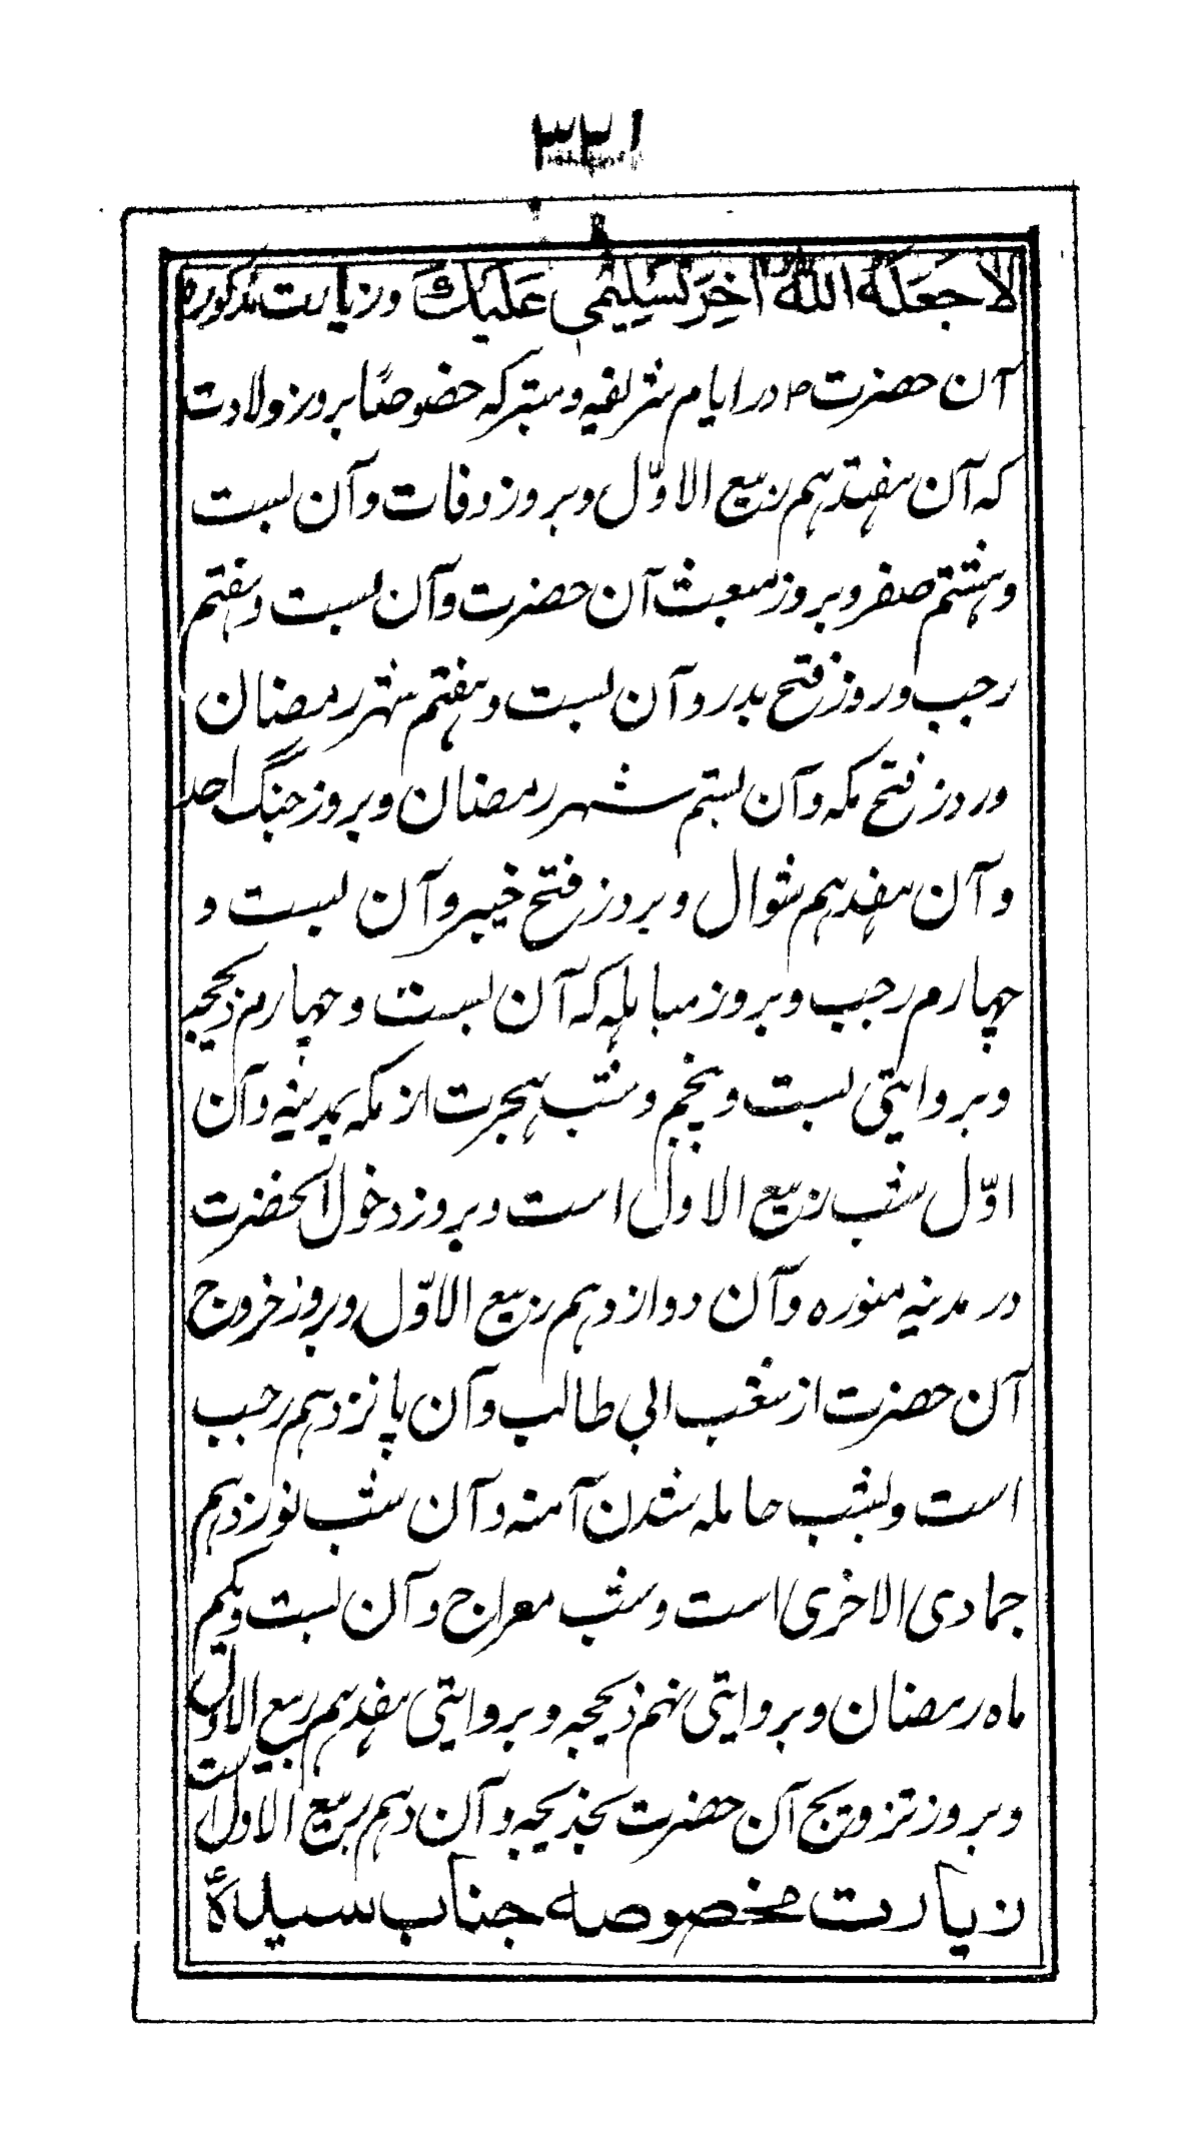 ۳۲۱
لَا جَعَلَهُ اللّٰهُ اٰخِرَ تَسْلِیْمِیْ عَلَیْکَ و زیارت مذکوره
آن حضرت ۴ در ایام شریفه و متبرکه خصوصًا بروز ولادت
که آن هفتدهم ربیع الاوّل و بروز وفات و آن بست
و هشتم صفر و بروز مبعث آن حضرت و آن بست و هفتم
رجب و روز فتح بدر و آن بست و هفتم شهر رمضان
و روز فتح مکه و آن بستم شهر رمضان و بروز جنگ احد
و آن هفدهم شوال و بروز فتح خیبر و آن بست و
چهارم رجب و بروز مباهله که آن بست و چهارم ذیحجه
و بروایتی بست و پنجم و شب هجرت از مکه بمدینه و آن
اوّل شب ربیع الاول است و بروز دخول آنحضرت
در مدینه منوره و آن دوازدهم ربیع الاوّل و بروز خروج
آن حضرت از شعب ابی طالب و آن پانزدهم رجب
است و بشب حامله شدن آمنه و آن شب نوزدهم
جمادی الاخری است و شب معراج و آن بست و یکم
ماه رمضان و بروایتی نهم ذیحجه و بروایتی هفدهم ربیع الاول
و بروز تزویج آن حضرت بخدیجه و آن دهم ربیع الاول است
زیارت مخصوصه جناب سیدةُ